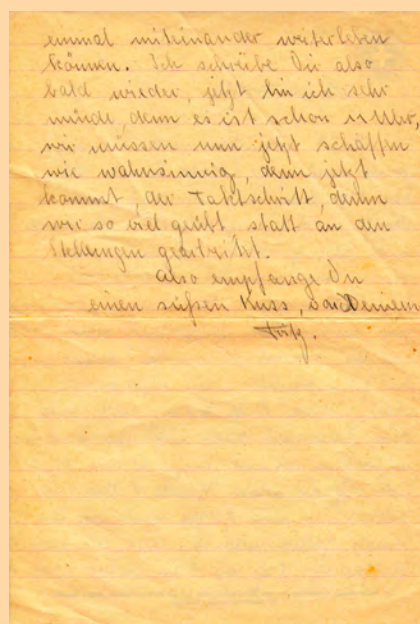 einmal miteinander weiterleben
können. Ich schreibe Dir also
bald wieder, jetzt bin ich sehr
müde, denn es ist schon 11 Uhr,
wir müssen nun jetzt schaffen
wie wahnsinnig, denn jetzt
kommt, der Taktschritt, denn
wir so viel geübt, statt an den
gearbeitet.
also empfange Du
einen süßen Kuss, Deinem